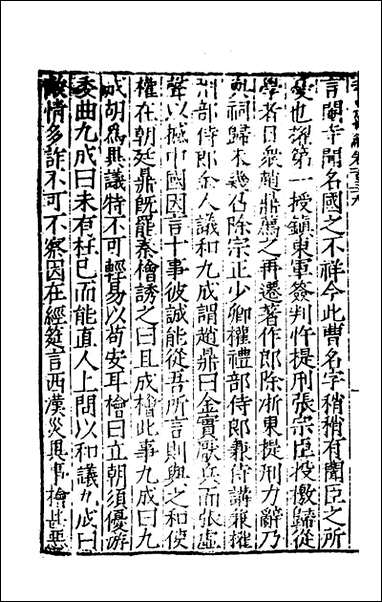 言閹寺聞名國之不祥今此曹名字稍稍有聞臣之所
憂也擢第一授鎮東軍簽判忤提刑張宗臣投檄歸從
學者日衆趙鼎薦之再遷著作郎除浙東提刑力辭乃
與祠歸本幾乃除宗正少卿權禮部侍郎兼侍講兼權
刑部侍郎金人議和九成謂趙鼎曰金實厭兵而張虛
聲以撼中國因言十事彼誠能從吾所言則與之和使
權在朝廷鼎旣罷秦檜誘之曰且成檜此事九成曰九
成胡爲異議特不可輕易以苟安耳檜曰立朝須優游
委曲九成曰未有枉己而能直人上問以和議九成曰
敵情多詐不可不察因在經筵言西漢災異事檜甚惡